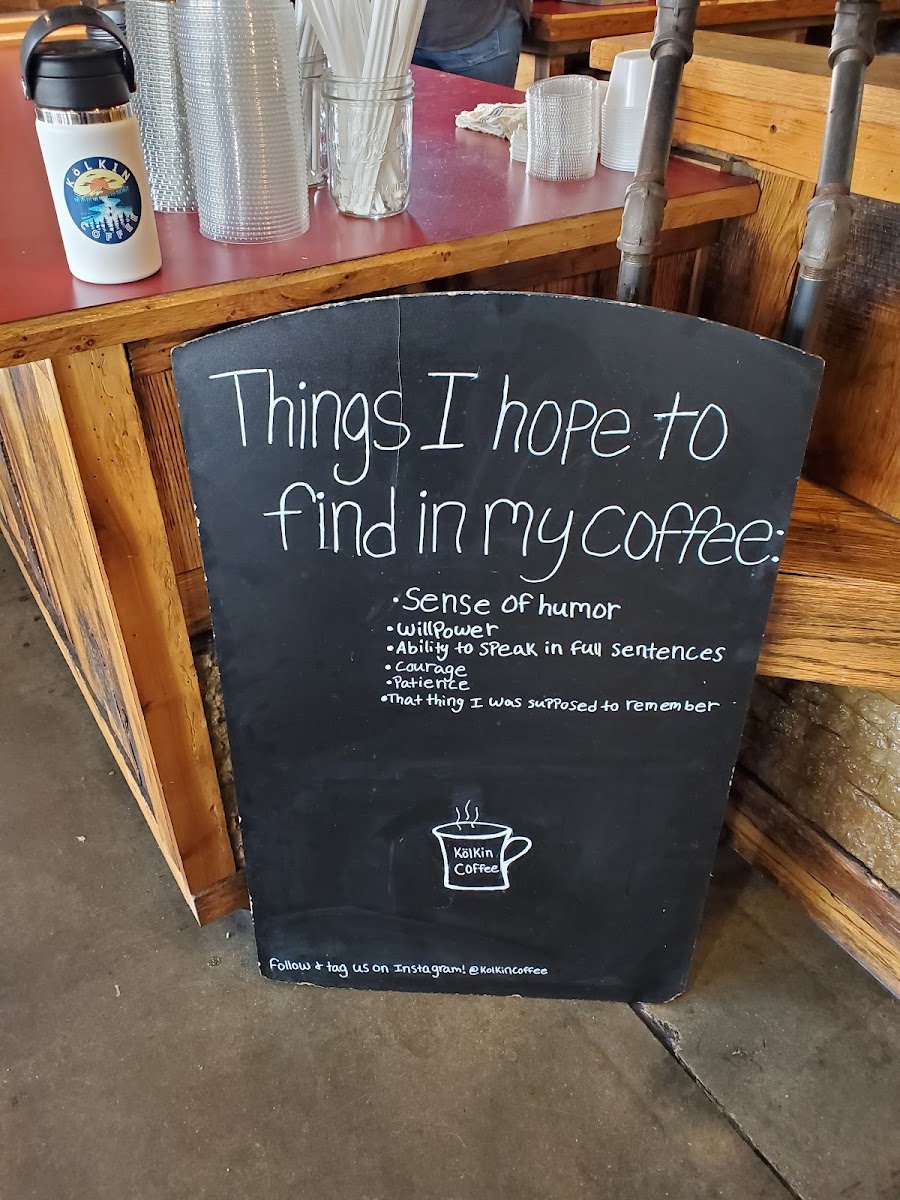 KöLKIN
COFFEE
Things I hope to
find in my coffee:
• Sense of humor
• Willpower
• Ability to speak in full sentences
• Courage
• Patience
• That thing I was supposed to remember
KölKin
Coffee
Follow & tag us on Instagram! @KolKinCoffee